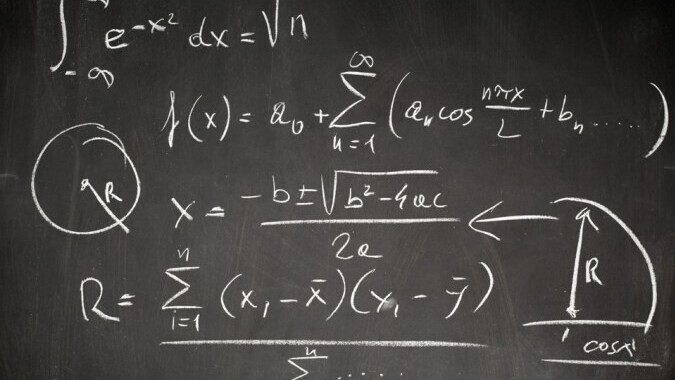 ∫_{-∞} e^{-x²} dx = √n
f(x) = a₀ + ∑_{n=1}^{∞} (aₙ cos nπx/L + bₙ .....)
R
x = -b ± √b² - 4ac / 2a
R
R = ∑_{i=1}^{n} (x₁ - x̄)(y₁ - ȳ) / ∑^{n} .....
cosx